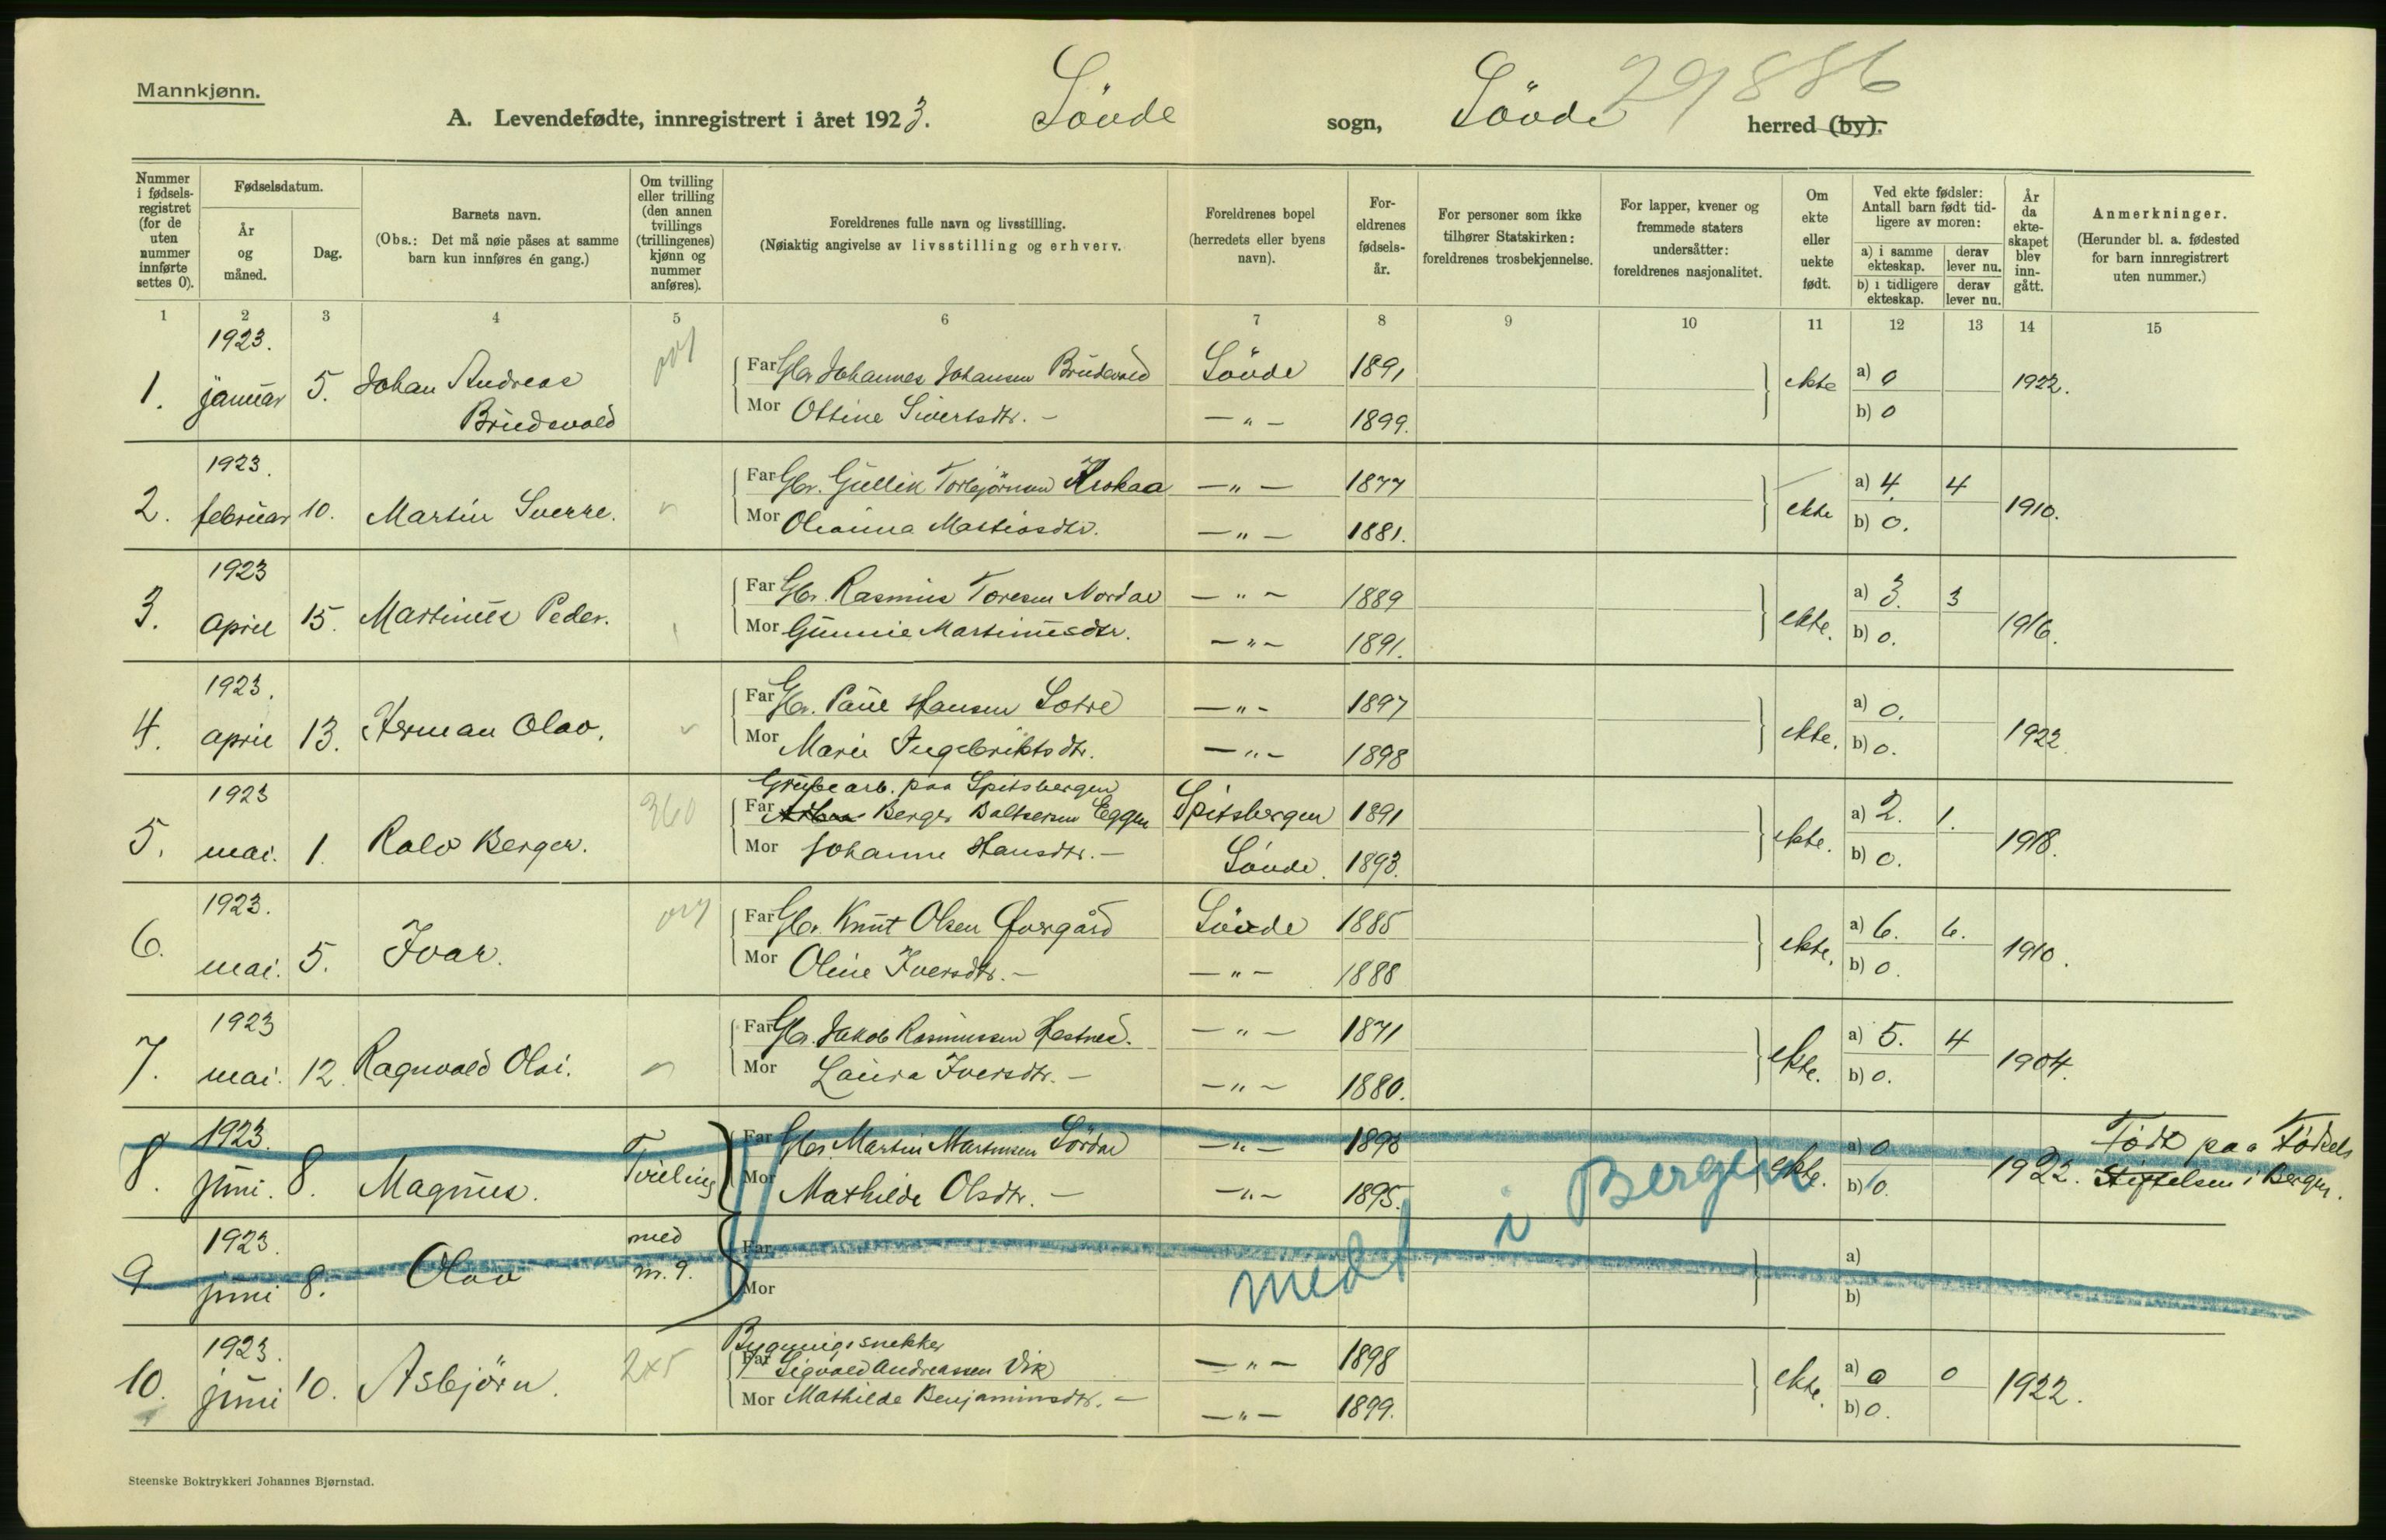 Mannkjønn.
29886
A. Levendefødte, innregistrert i året 1923. Sövde sogn, Sövde herred (by).
Nummer i fødselsregistret (for de uten nummer innførte settes 0).
Fødselsdatum.
År og måned.
Dag.
Barnets navn.
(Obs.: Det må nøie påses at samme barn kun innføres én gang.)
Om tvilling eller trilling (den annen tvillings (trillingenes) kjønn og nummer anføres).
Foreldrenes fulle navn og livsstilling.
(Nøiaktig angivelse av livsstilling og erhverv.
Foreldrenes bopel (herredets eller byens navn).
Foreldrenes fødselsår.
For personer som ikke tilhører Statskirken: foreldrenes trosbekjennelse.
For lapper, kvener og fremmede staters undersåtter: foreldrenes nasjonalitet.
Om ekte eller uekte født.
Ved ekte fødsler: Antall barn født tidligere av moren:
a) i samme ekteskap. derav lever nu.
b) i tidligere ekteskap. derav lever nu.
År da ekteskapet blev inngått.
Anmerkninger.
(Herunder bl. a. fødested for barn innregistrert uten nummer.)
1 2 3 4 5 6 7 8 9 10 11 12 13 14 15
1923.
1. januar 5. Johan Andreas Brudevold
Far Gbr Johannes Johansen Brudevold Søvde 1891 ekte a) 0 1922.
Mor Ottine Sivertsdtr. — — " — 1899. b) 0
1923.
2. februar 10. Martin Sverre.
Far Gbr. Gullik Torbjörnsen Krokaa — " — 1877 ekte a) 4. 4 1910.
Mor Oleanna Mattiasdtr. — " — 1881. b) 0.
1923
3. april 15. Martinus Peder.
Far Gbr. Rasmus Toresen Nordal — " — 1889 ekte. a) 3. 3 1916.
Mor Gunnie Martinusdtr. — " — 1891. b) 0.
1923.
4. april 13. Herman Olav.
Far Gbr. Paul Hansen Sotre — " — 1897 ekte. a) 0. 1922
Mor Marie Ingebriktsdtr. — " — 1898 b) 0.
1923
5. mai. 1. Rolv Berger. 360
Grubearb. paa Spitsbergen
Far Berger Baltsersen Eggen Spitsbergen 1891 ekte. a) 2. 1. 1918.
Mor Johanne Hansdtr. — Søvde. 1893. b) 0.
1923.
6. mai. 5. Ivar.
Far Gbr. Knut Olsen Övergård Søvde 1885 ekte. a) 6. 6. 1910.
Mor Oline Iversdtr. — — " — 1888 b) 0.
1923
7. mai. 12. Ragnvald Olai.
Far Gbr. Jakob Rasmussen Hestnes. — " — 1871 ekte. a) 5. 4 1904.
Mor Laura Iversdtr. — — " — 1880. b) 0.
1923.
8. juni. 8. Magnus. Tvilling
Far Gbr. Martin Martinsen Sördal — " — 1893 ekte. a) 0 1922. Född paa Fødsels
Mor Mathilde Olsdtr. — — " — 1895. b) 0. Stiftelsen i Bergen.
medt. i Bergen
1923.
9 juni 8. Olav med nr. 9.
Far a)
Mor b)
1923.
10. juni 10. Asbjörn. 2x5
Bygningssnekker
Far Sigvald Andreassen Vik — " — 1898 ekte. a) 0 0 1922.
Mor Mathilde Benjaminsdtr. — — " — 1899. b) 0.
Steenske Boktrykkeri Johannes Bjørnstad.